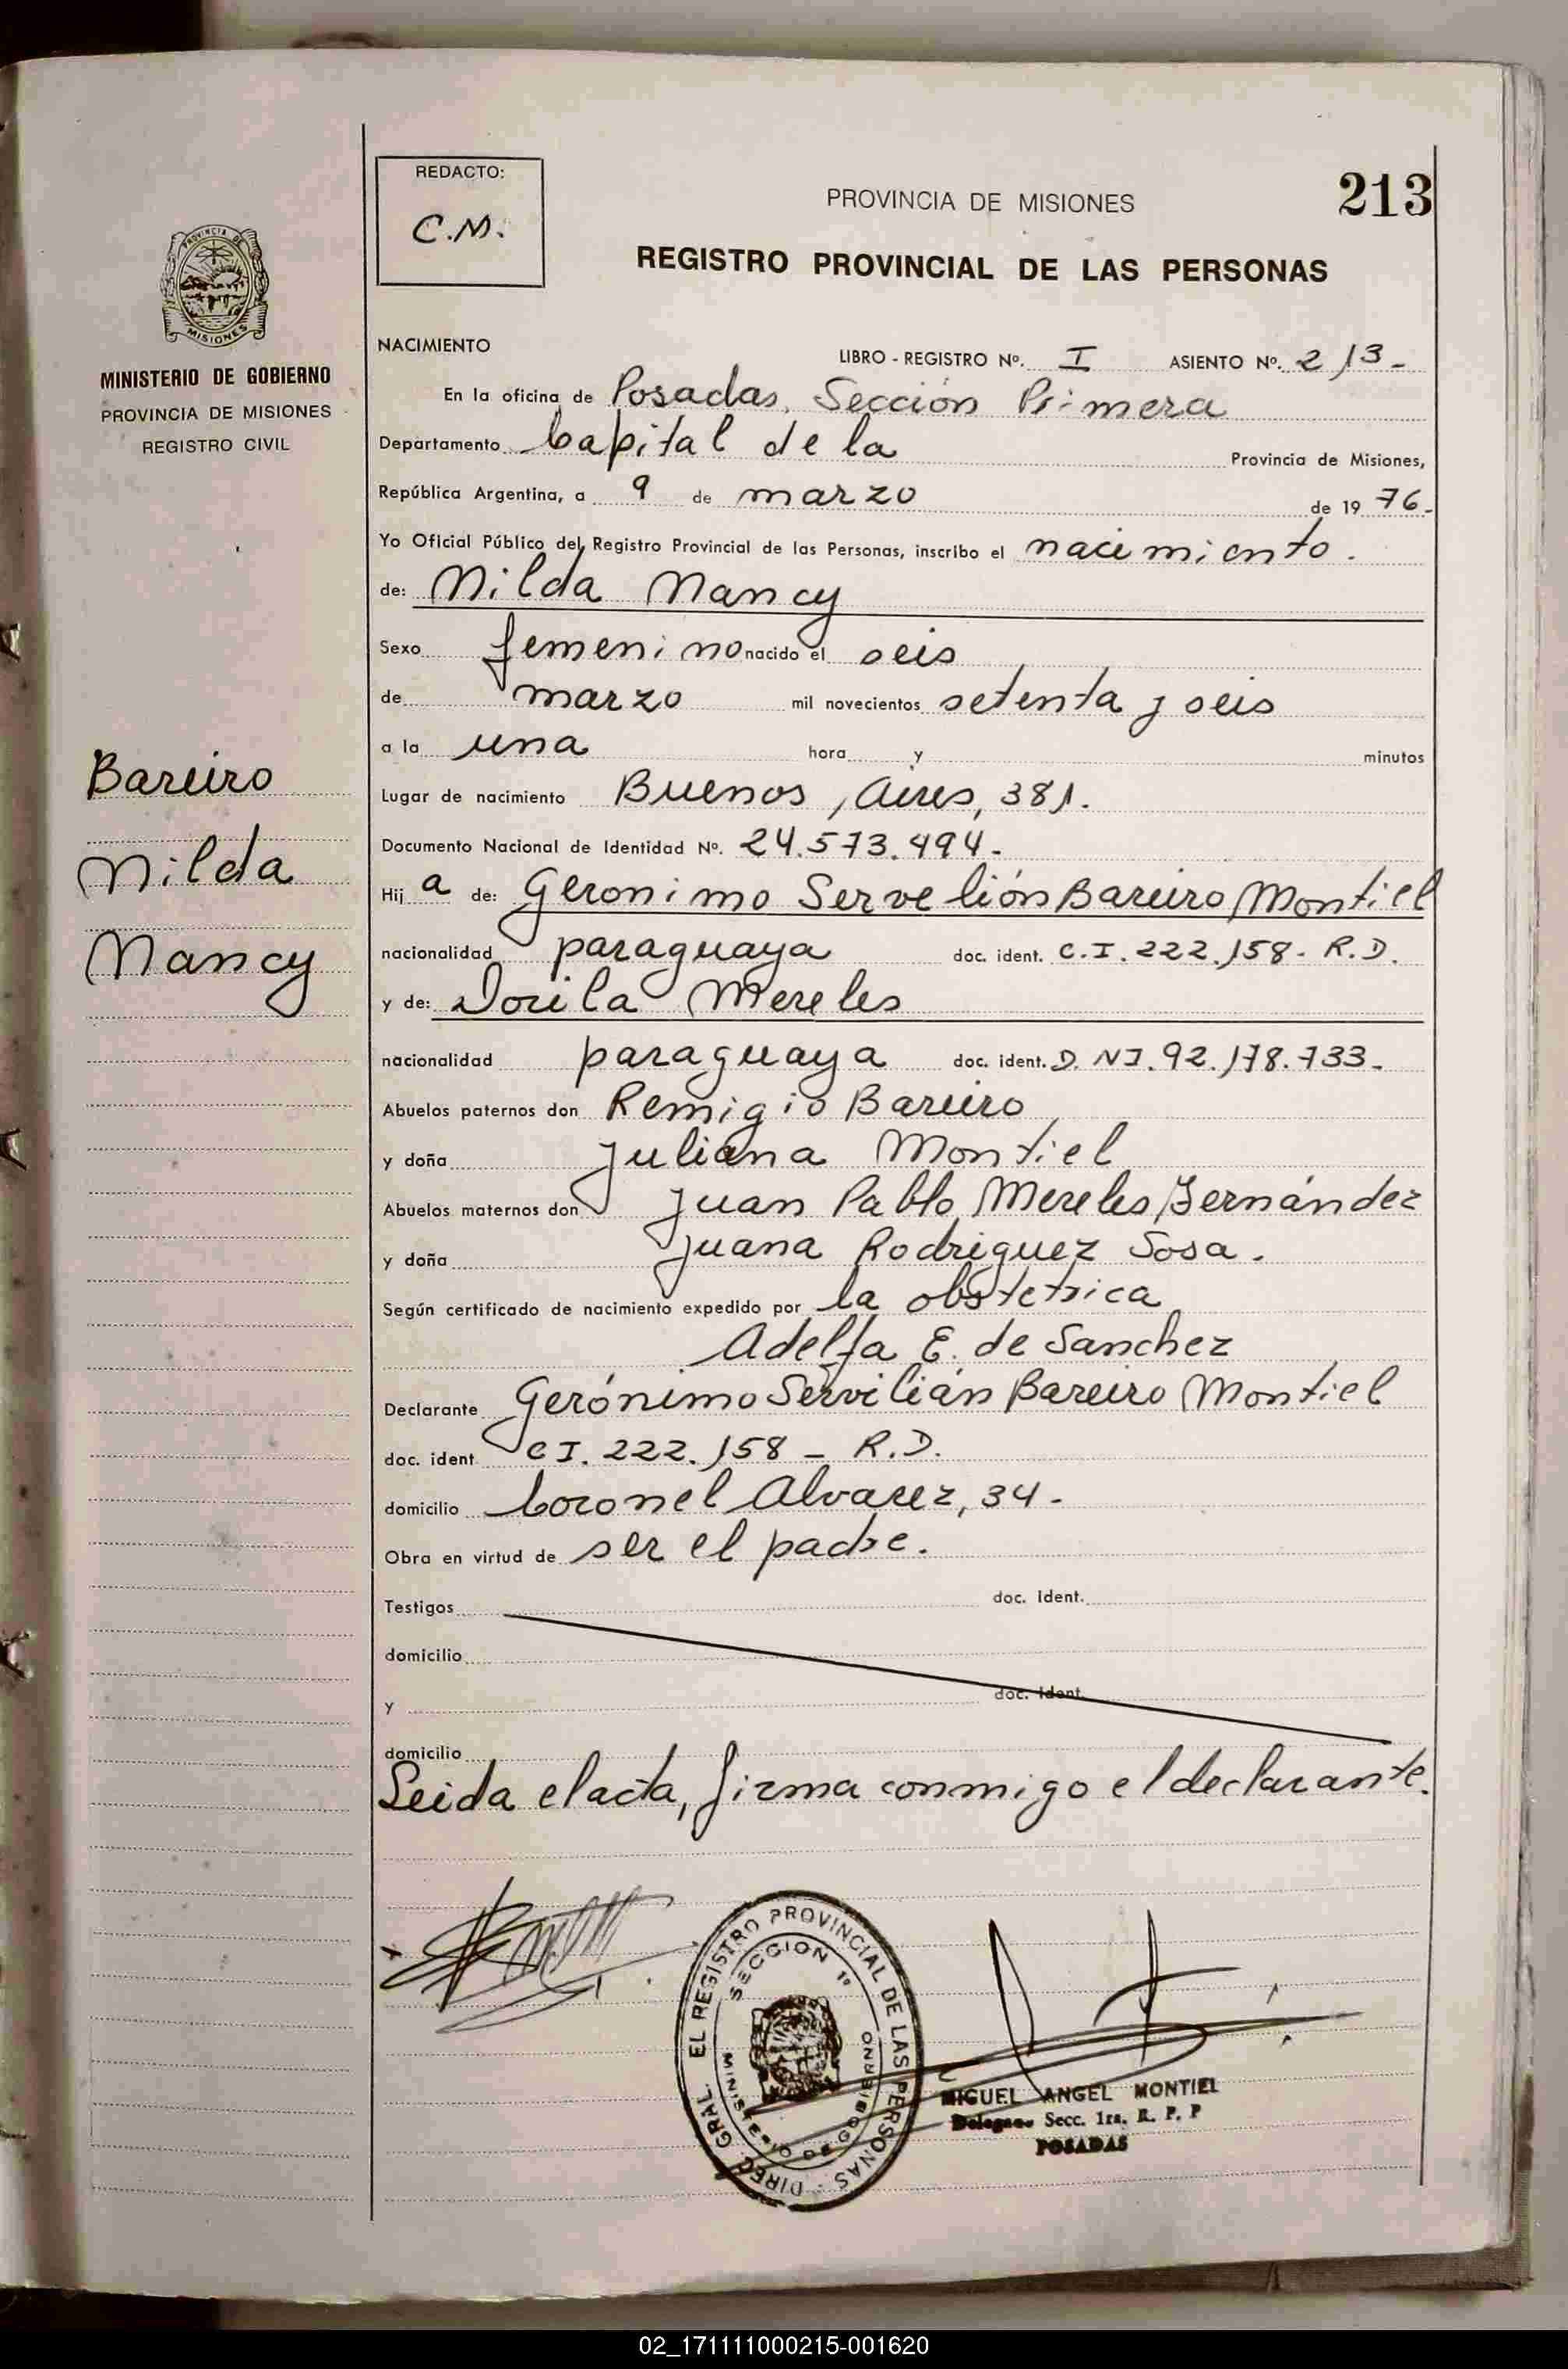 213
REDACTO:
C.M.
PROVINCIA DE MISIONES
REGISTRO PROVINCIAL DE LAS PERSONAS
PROVINCIA DE
MISIONES
MINISTERIO DE GOBIERNO
PROVINCIA DE MISIONES
REGISTRO CIVIL
Bareiro
Nilda
Nancy
NACIMIENTO
LIBRO - REGISTRO Nº. I ASIENTO Nº. 213-
En la oficina de Posadas, Sección Primera
Departamento Capital de la Provincia de Misiones,
República Argentina, a 9 de marzo de 1976-
Yo Oficial Público del Registro Provincial de las Personas, inscribo el nacimiento.
de: Nilda Nancy
Sexo femenino nacido el seis
de marzo mil novecientos setenta y seis
a la una hora y minutos
Lugar de nacimiento Buenos Aires, 381.
Documento Nacional de Identidad Nº. 24.573.494-
Hija de: Geronimo Servelión Bareiro Montiel
nacionalidad paraguaya doc. ident. C.I. 222.158- R.D.
y de: Dorila Mereles
nacionalidad paraguaya doc. ident. D.NI. 92.178.733-
Abuelos paternos don Remigio Bareiro
y doña Juliana Montiel
Abuelos maternos don Juan Pablo Mereles Fernández
y doña Juana Rodriguez Sosa.
Según certificado de nacimiento expedido por la obstetrica
Adelfa E. de Sanchez
Declarante Gerónimo Servilián Bareiro Montiel
doc. ident. CI. 222.158 - R.D.
domicilio Coronel Alvarez, 34-
Obra en virtud de ser el padre.
Testigos doc. ident.
domicilio
y doc. ident.
domicilio
Leida el acta, firma conmigo el declarante.
DIREC. GRAL. EL REGISTRO PROVINCIAL DE LAS PERSONAS
SECCION 1º
MINISTERIO DE GOBIERNO
MIGUEL ANGEL MONTIEL
Delegado Secc. 1ra. R. P. P
POSADAS
02_171111000215-001620